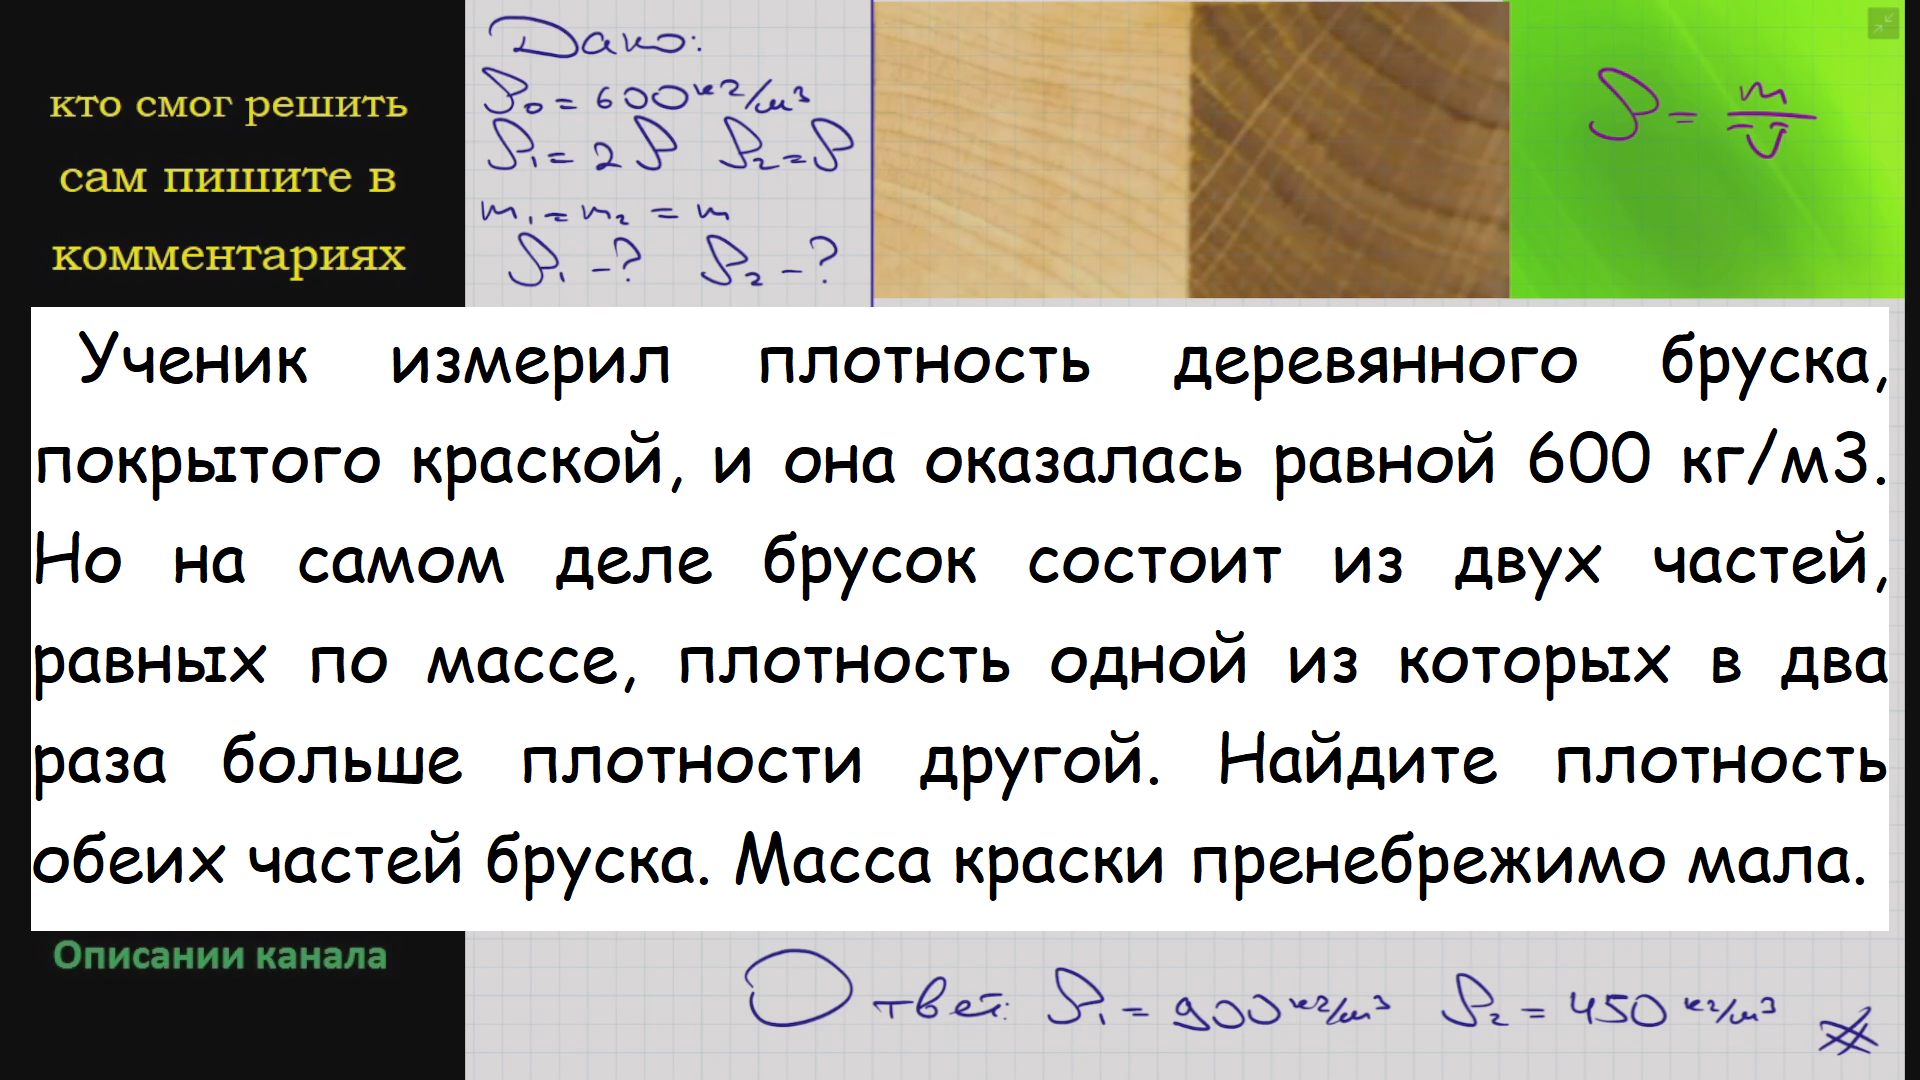 кто смог решить
сам пишите в
комментариях
Дано:
ρ₀ = 600 кг/м³
ρ₁ = 2ρ ρ₂ = ρ
m₁ = m₂ = m
ρ₁ - ? ρ₂ - ?
ρ = m/V
Ученик измерил плотность деревянного бруска,
покрытого краской, и она оказалась равной 600 кг/м3.
Но на самом деле брусок состоит из двух частей,
равных по массе, плотность одной из которых в два
раза больше плотности другой. Найдите плотность
обеих частей бруска. Масса краски пренебрежимо мала.
Описании канала
Ответ: ρ₁ = 900 кг/м³ ρ₂ = 450 кг/м³